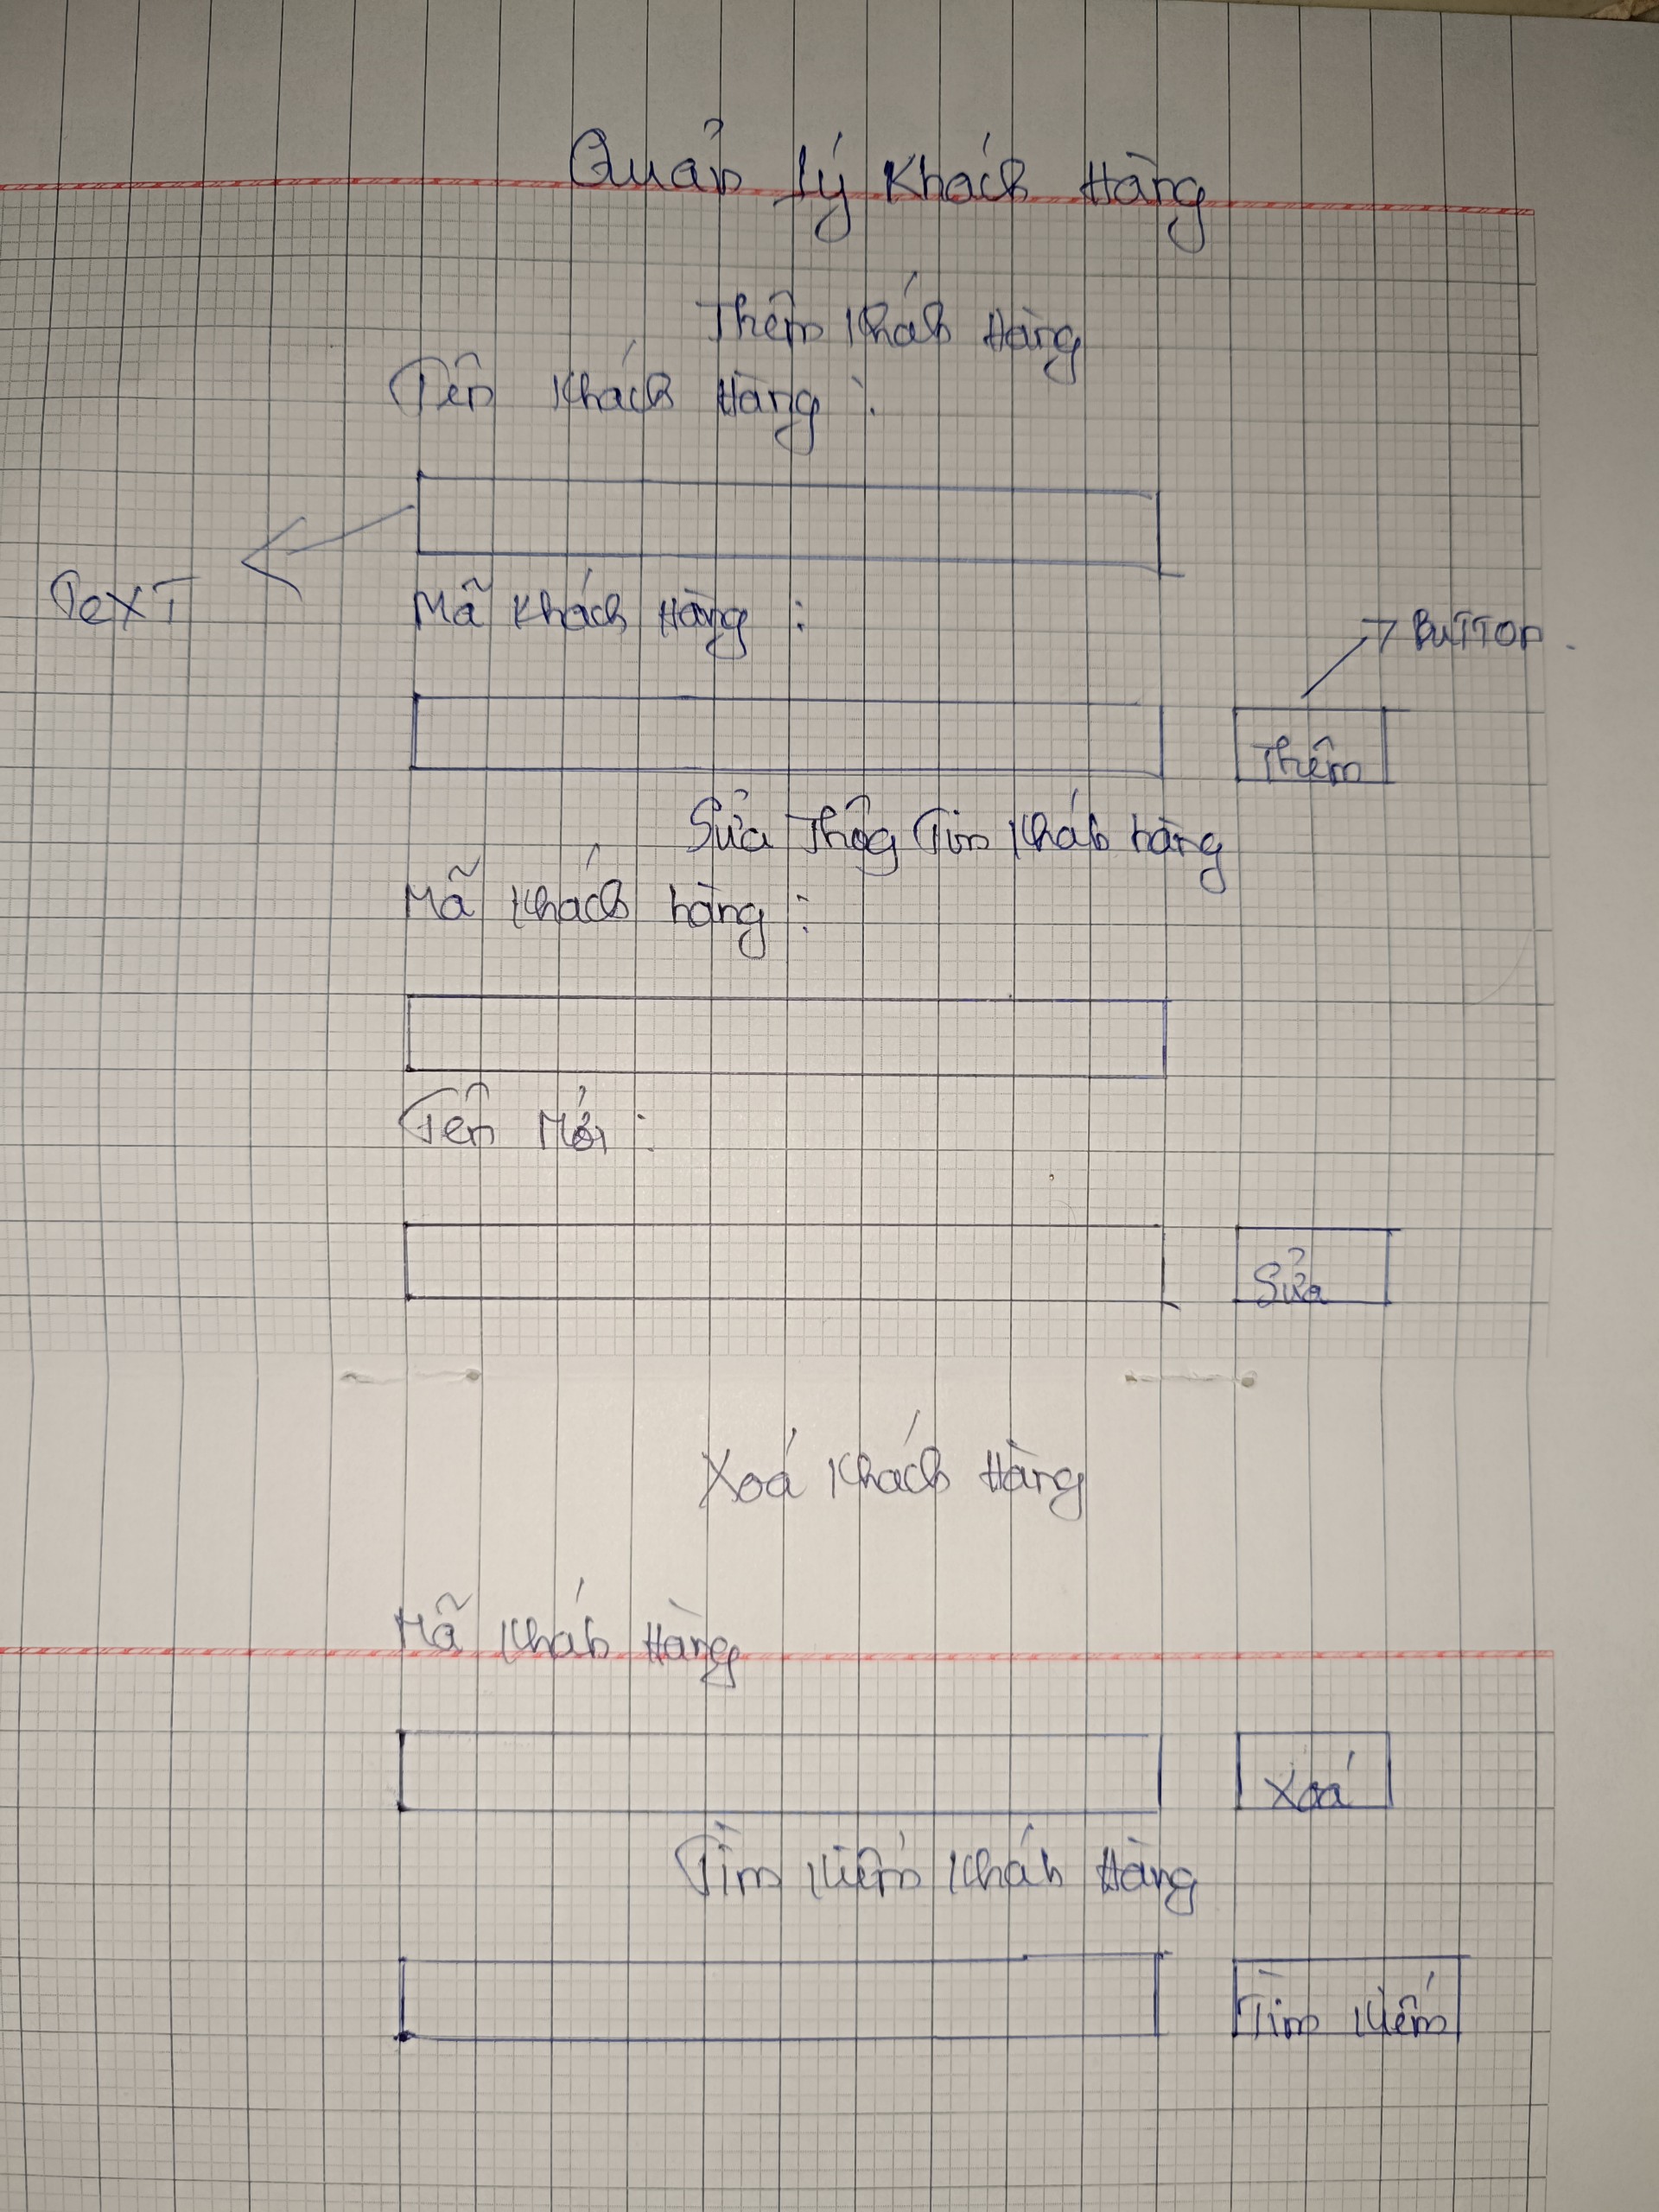 Quản lý Khách Hàng
Thêm Khách Hàng
Tên Khách Hàng :
Text
Mã Khách Hàng :
Button
Thêm
Sửa Thông Tin Khách hàng
Mã Khách hàng :
Tên Mới :
Sửa
Xoá Khách Hàng
Mã Khách Hàng
Xoá
Tìm Kiếm Khách Hàng
Tìm Kiếm